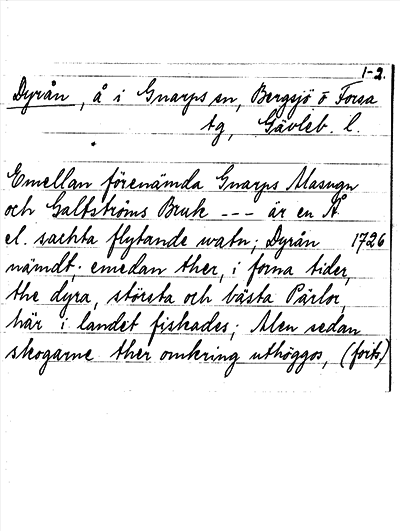 1-2.
Dyrån, å i Gnarps sn, Bergsjö o Forsa
tg, Gävleb. l.
Emellan förenämda Gnarps Masugn
och Galtströms Bruk --- är en Å
el. sachta flytande watn; Dyrån 1726
nämdt; emedan ther, i forna tider,
the dyra, största och bästa Pärlor,
här i landet fiskades; Men sedan
skogarne ther omkring uthöggos, (forts.)